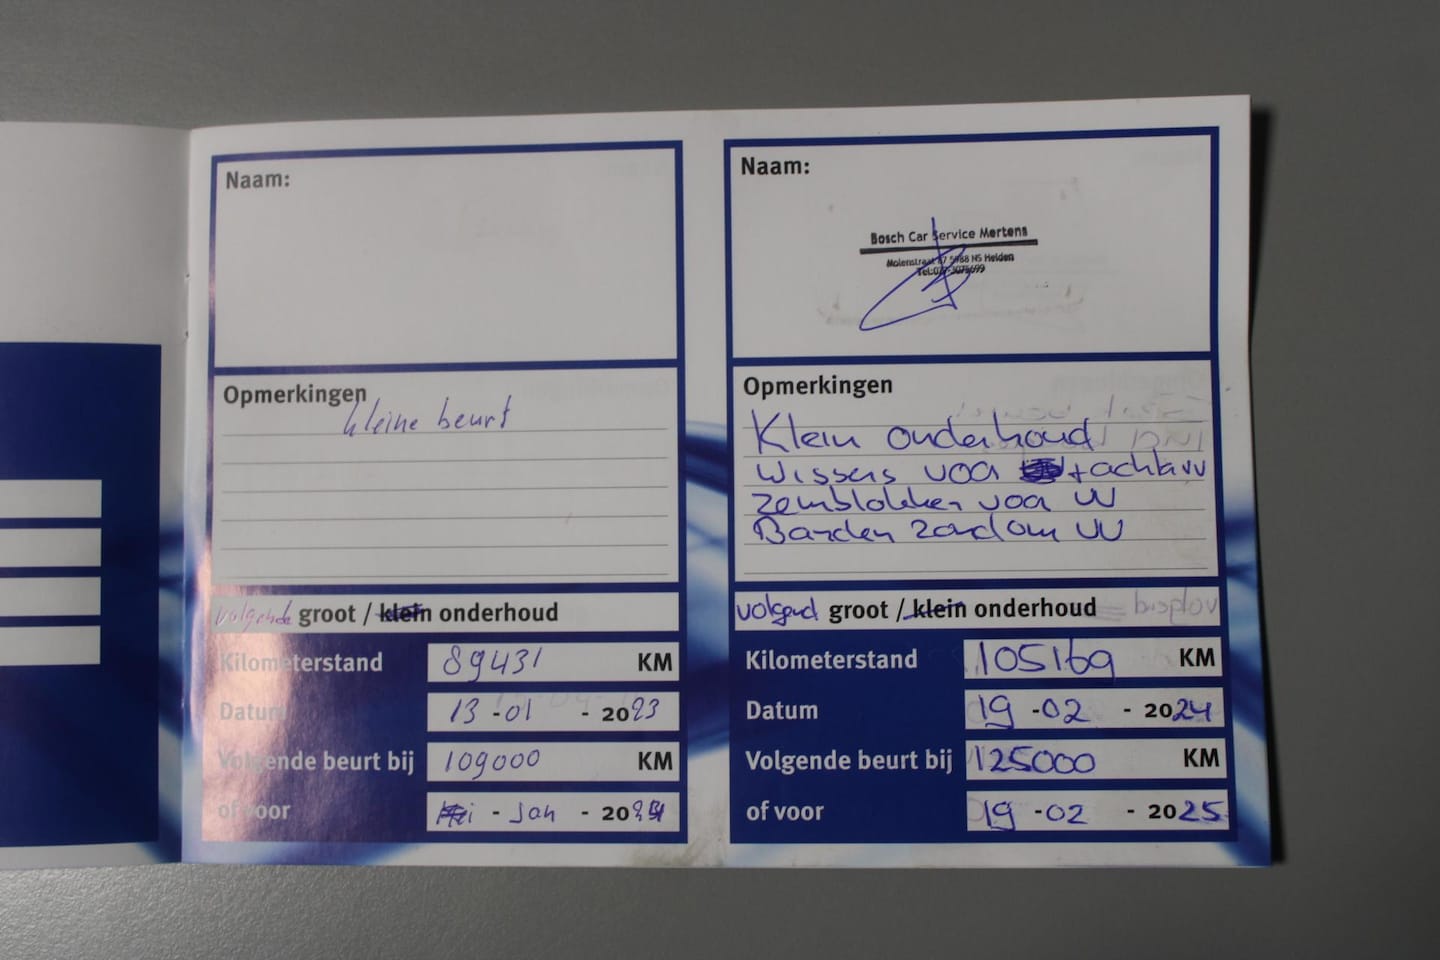 Naam:
Opmerkingen
kleine beurt
volgende groot / klein onderhoud
Kilometerstand 89431 KM
Datum 13 -01 - 2023
Volgende beurt bij 109000 KM
of voor - Jan - 2024
Naam:
Bosch Car Service Mertens
Molenstraat 5988 NS Helden
Opmerkingen
Klein onderhoud
Wissers voor + achter vv
Remblokken voor VV
Banden rondom VV
volgend groot / klein onderhoud
Kilometerstand 105169 KM
Datum 19 -02 - 2024
Volgende beurt bij 125000 KM
of voor 19 -02 - 2025